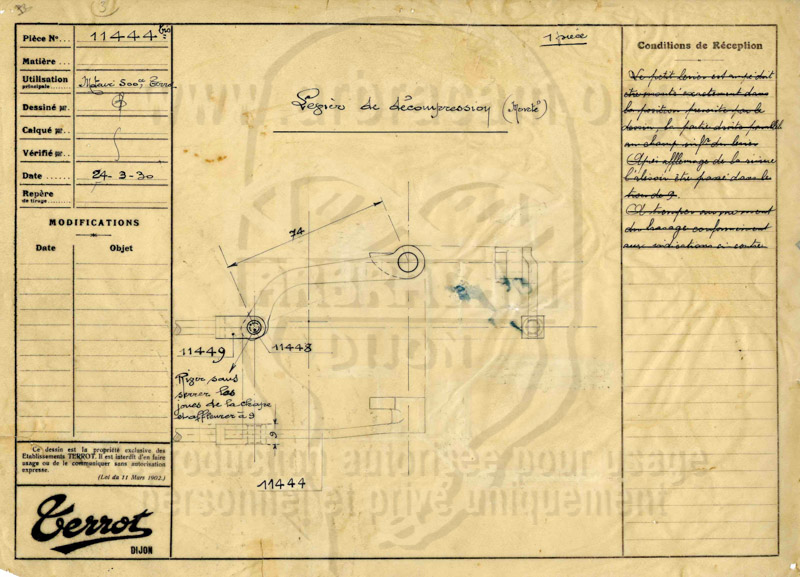 3
Pièce No... 11444
Matière...
Utilisation principale... Moteur 500cc Terrot
Dessiné par...
Calqué par...
Vérifié par...
Date... 24-3-30
Repère de tirage...
MODIFICATIONS
Date Objet
1 pièce
Levier de décompression (Monté)
74
11449
11448
River sans
serrer les
joues de la chape
et affleurer à 9
9
11444
Conditions de Réception
Le petit levier
être monté exactement dans
la position
dessin, la partie droite
au champ infr du levier
Après affleurage de la rivure
l'alésoir être passé dans le
trou de 9.
du perçage conformément
aux indications ci contre
Ce dessin est la propriété exclusive des
Etablissements TERROT. Il est interdit d'en faire
usage ou de le communiquer sans autorisation
expresse.
(Loi du 11 Mars 1902.)
Terrot
DIJON
reproduction autorisée pour usage
personnel et privé uniquement